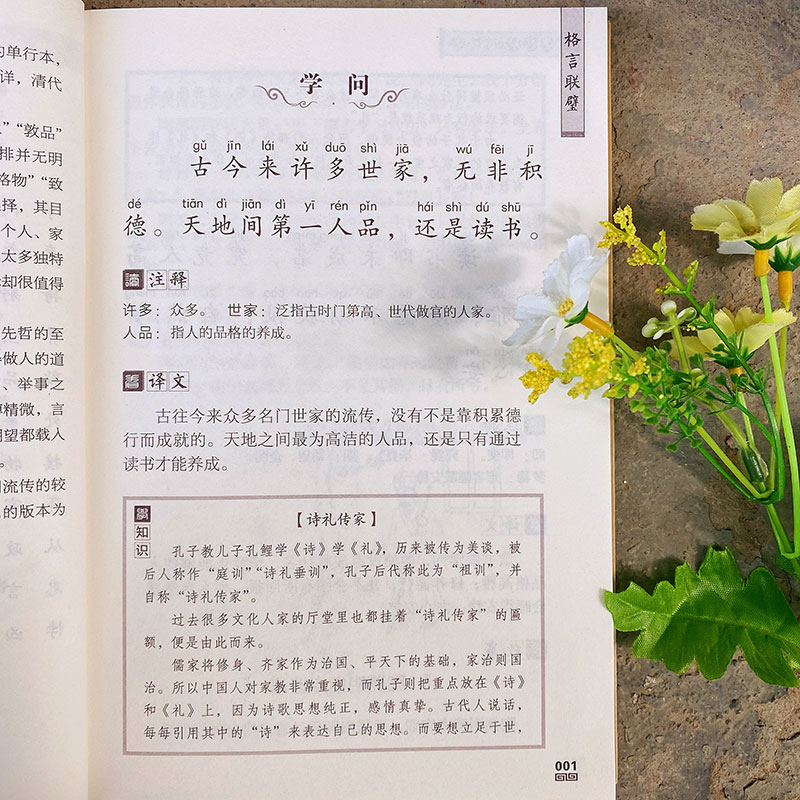 的单行本,
详,清代
”“敦品”
排并无明
格物”“致
择,其目
个人、家
太多独特
却很值得
先哲的至
做人的道
、举事之
精微,言
期望都载人
流传的较
的版本为
格言联璧
学 问
gǔ jīn lái xǔ duō shì jiā wú fēi jī
古今来许多世家,无非积
dé tiān dì jiān dì yī rén pǐn hái shì dú shū
德。天地间第一人品,还是读书。
注释
许多:众多。 世家:泛指古时门第高、世代做官的人家。
人品:指人的品格的养成。
译文
古往今来众多名门世家的流传,没有不是靠积累德
行而成就的。天地之间最为高洁的人品,还是只有通过
读书才能养成。
知识
【诗礼传家】
孔子教儿子孔鲤学《诗》学《礼》,历来被传为美谈,被
后人称作“庭训”“诗礼垂训”,孔子后代称此为“祖训”,并
自称“诗礼传家”。
过去很多文化人家的厅堂里也都挂着“诗礼传家”的匾
额,便是由此而来。
儒家将修身、齐家作为治国、平天下的基础,家治则国
治。所以中国人对家教非常重视,而孔子则把重点放在《诗》
和《礼》上,因为诗歌思想纯正,感情真挚。古代人说话,
每每引用其中的“诗”来表达自己的思想。而要想立足于世,
001